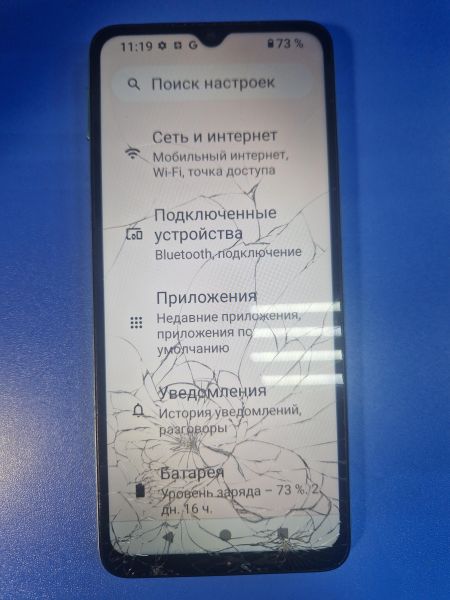 11:19 G 73 %
Поиск настроек
Сеть и интернет
Мобильный интернет,
Wi-Fi, точка доступа
Подключенные
устройства
Bluetooth, подключение
Приложения
Недавние приложения,
приложения по
умолчанию
Уведомления
История уведомлений,
разговоры
Батарея
Уровень заряда – 73 %. 2
дн. 16 ч.